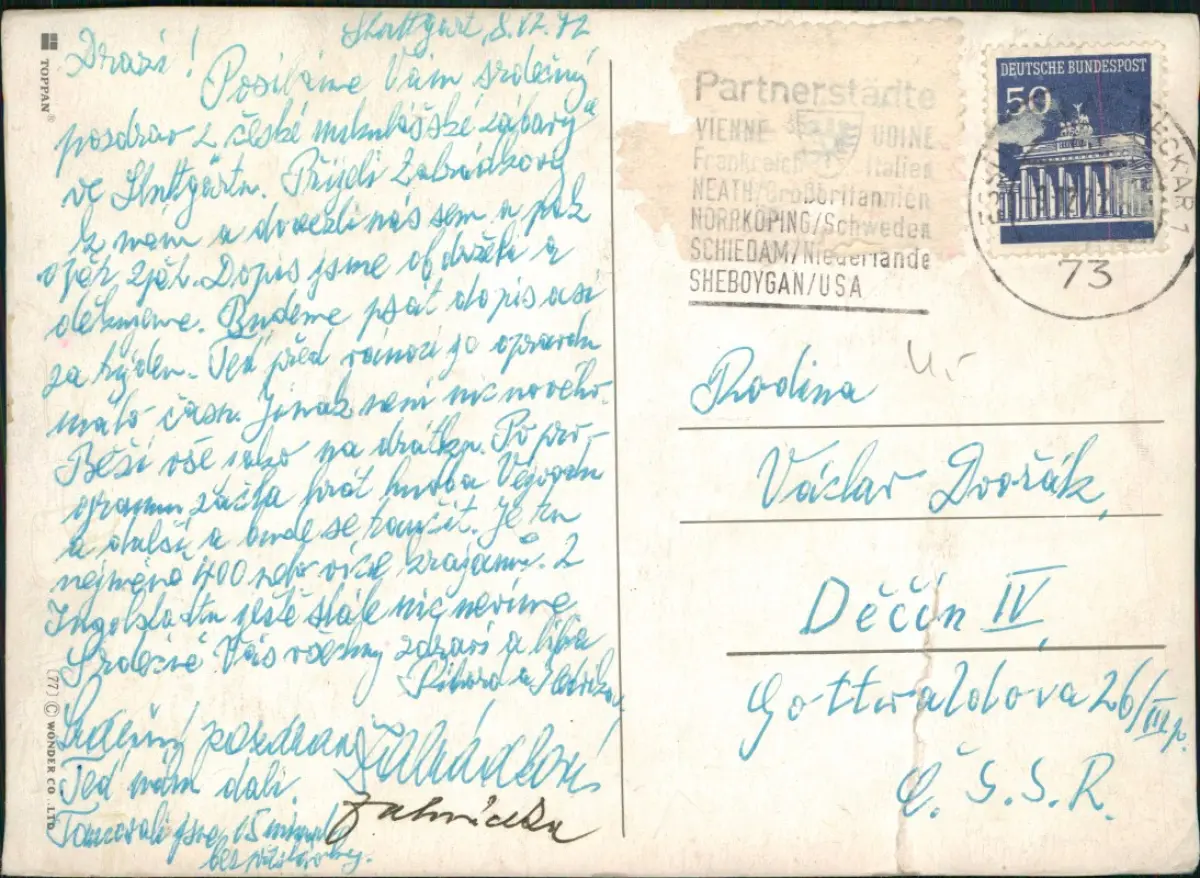 TOPPAN®
Stuttgart, 8.12.72
Drazí!
Posíláme Vám srdečný
pozdrav z české mikulášské zábavy
ve Stuttgartu. Přijeli Zahrádkovi
k nám a dovezli nás sem a pak
opět zpět. Dopis jsme obdrželi a
děkujeme. Budeme psát dopis asi
za týden. Teď před vánoci je opravdu
málo času. Jinak není nic nového.
Běží vše jako na drátku. Po pro-
gramu začla hrát hudba
a další a bude se tančit. Je tu
nejméně 400 nebo více krajanů. Z
Ingolstadtu ještě stále nic nevíme
Srdečně Vás všechny zdraví a líbá
Srdečný pozdrav Zahrádkovi
Teď nám dali.
Tancovali jsme 15 minut
bez přestávky.
(77) © WONDER CO., LTD.
Partnerstädte
VIENNE UDINE
Frankreich Italien
NEATH/Großbritannien
NORRKÖPING/Schweden
SCHIEDAM/Niederlande
SHEBOYGAN/USA
DEUTSCHE BUNDESPOST
50
NECKAR 1
73
Rodina
Václav Dvořák,
Děčín IV,
Gottwaldova 26/III p.
Č.S.S.R.